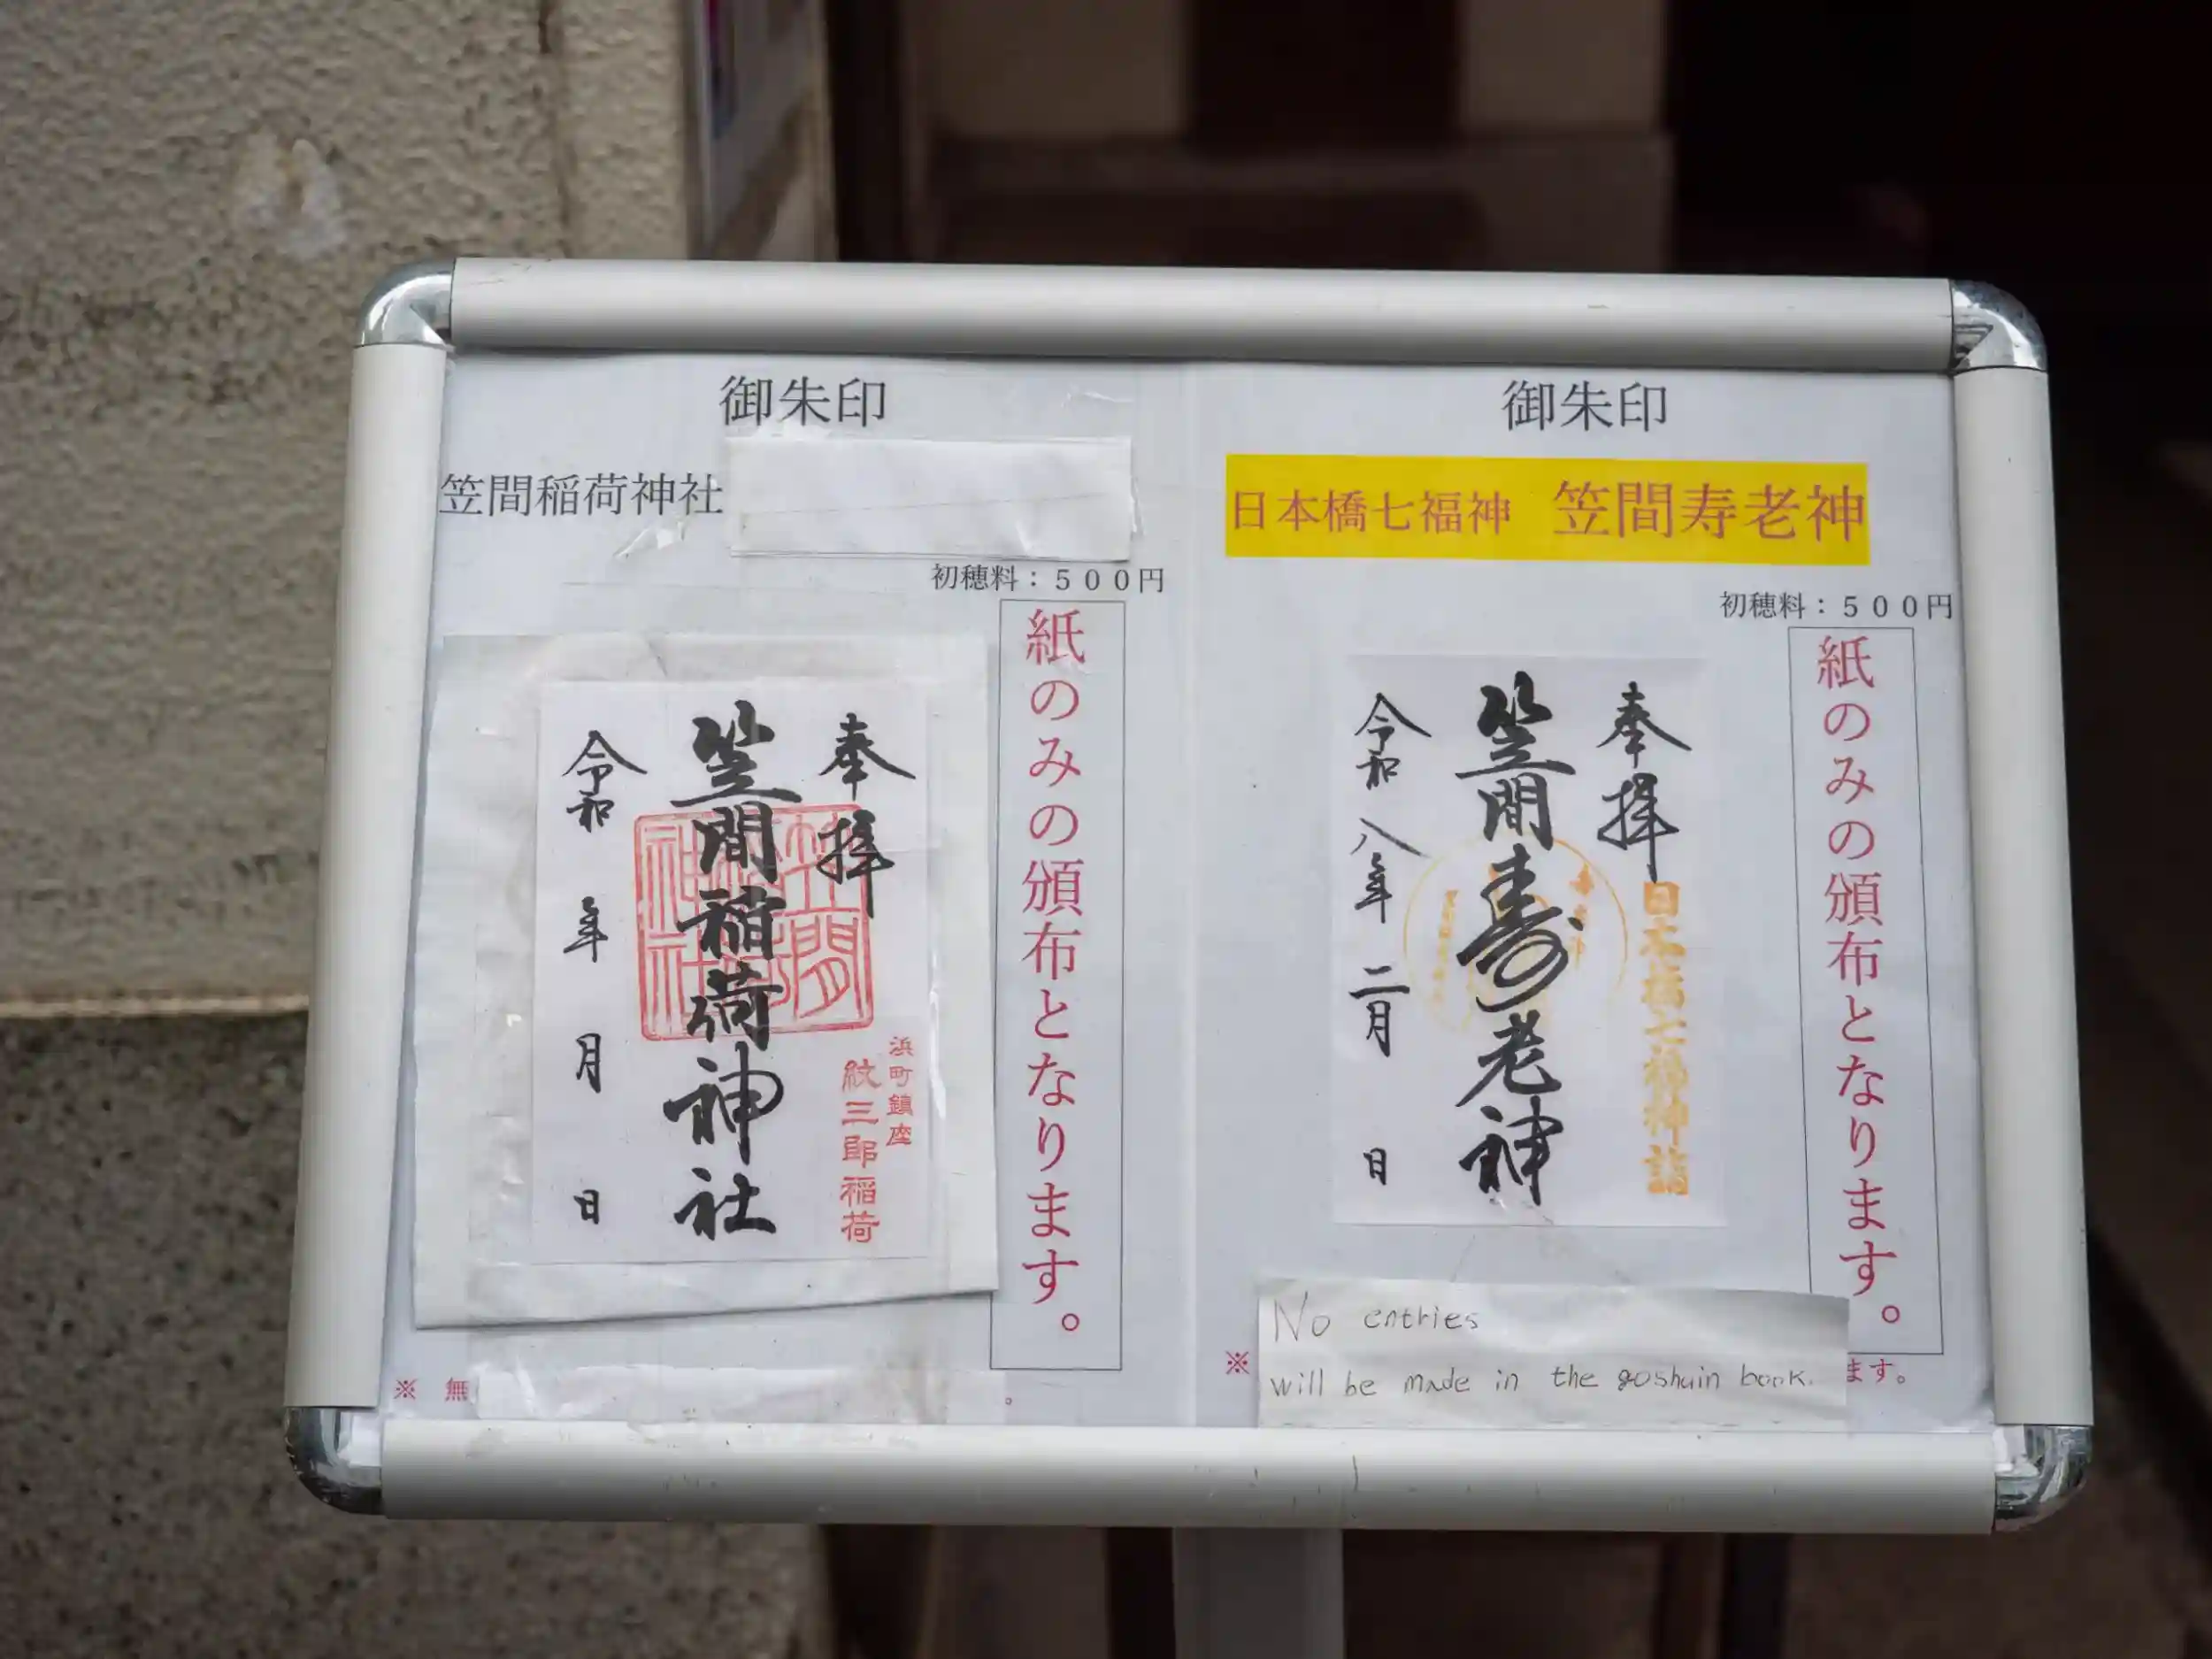 御朱印
笠間稲荷神社
初穂料：５００円
紙のみの頒布となります。
奉拝
笠間稲荷神社
浜町鎮座
紋三郎稲荷
令和 年 月 日
※ 無
。
御朱印
日本橋七福神 笠間寿老神
初穂料：５００円
紙のみの頒布となります。
奉拝
日本橋七福神詣
笠間寿老神
令和八年二月 日
No entries
will be made in the goshuin book.
※
ます。